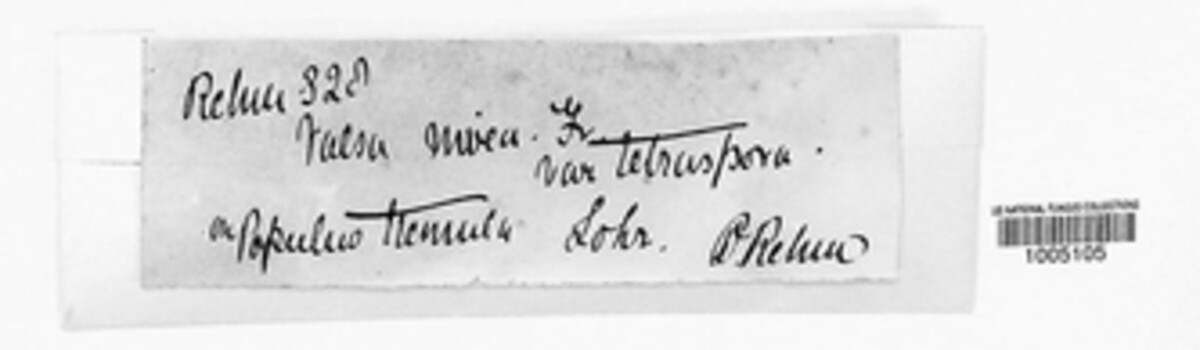 Rehm 328
Valsa nivea. Fr.
var tetraspora.
on Populus tremula Lohr. Dr Rehm
US NATIONAL FUNGUS COLLECTIONS
1005105